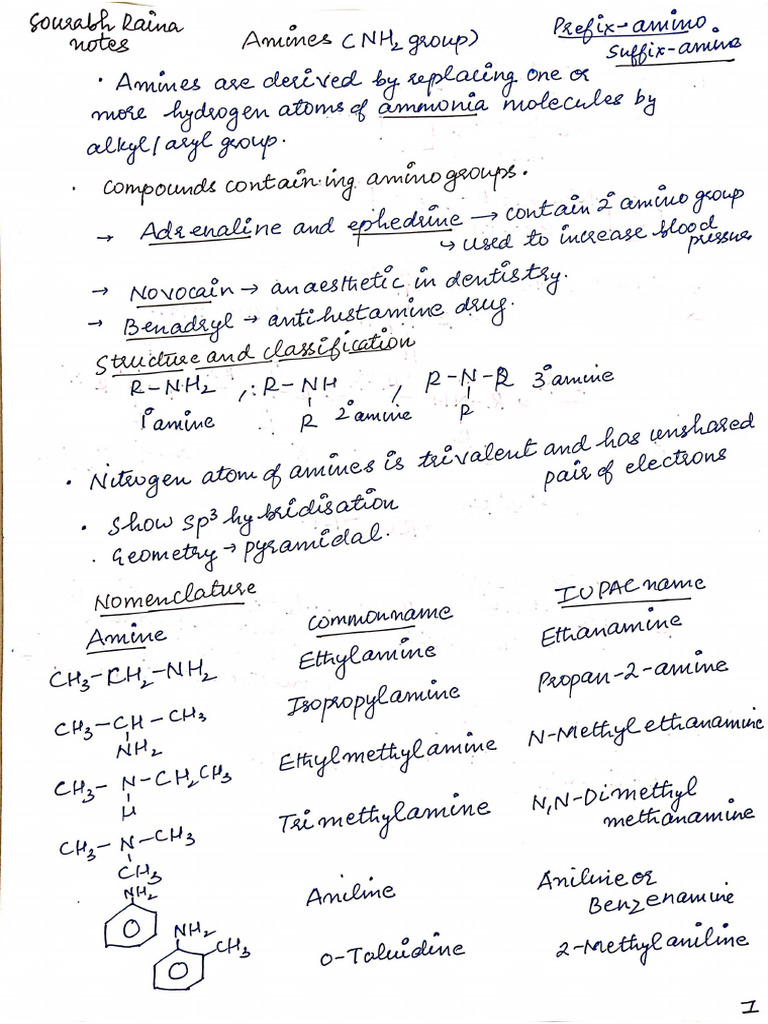 Sourabh Raina notes
Amines (NH₂ group)
Prefix-amino
Suffix-amine
· Amines are derived by replacing one or
more hydrogen atoms of ammonia molecules by
alkyl/aryl group.
· Compounds containing amino groups.
→ Adrenaline and ephedrine → contain 2° amino group
↳ used to increase blood pressure
→ Novocain → anaesthetic in dentistry.
→ Benadryl → antihistamine drug.
Structure and classification
R-NH₂ , : R-NH , R-N-R 3° amine
1° amine R 2° amine R
· Nitrogen atom of amines is trivalent and has unshared
pair of electrons
· Show sp³ hybridisation
· Geometry → pyramidal.
Nomenclature
Amine Common name IUPAC name
CH₃-CH₂-NH₂ Ethylamine Ethanamine
CH₃-CH-CH₃ Isopropylamine Propan-2-amine
NH₂
CH₃-N-CH₂CH₃ Ethylmethylamine N-Methylethanamine
H
CH₃-N-CH₃ Trimethylamine N,N-Dimethyl
CH₃ methanamine
NH₂ Aniline Aniline or
Benzenamine
NH₂ CH₃ o-Toluidine 2-Methylaniline
1